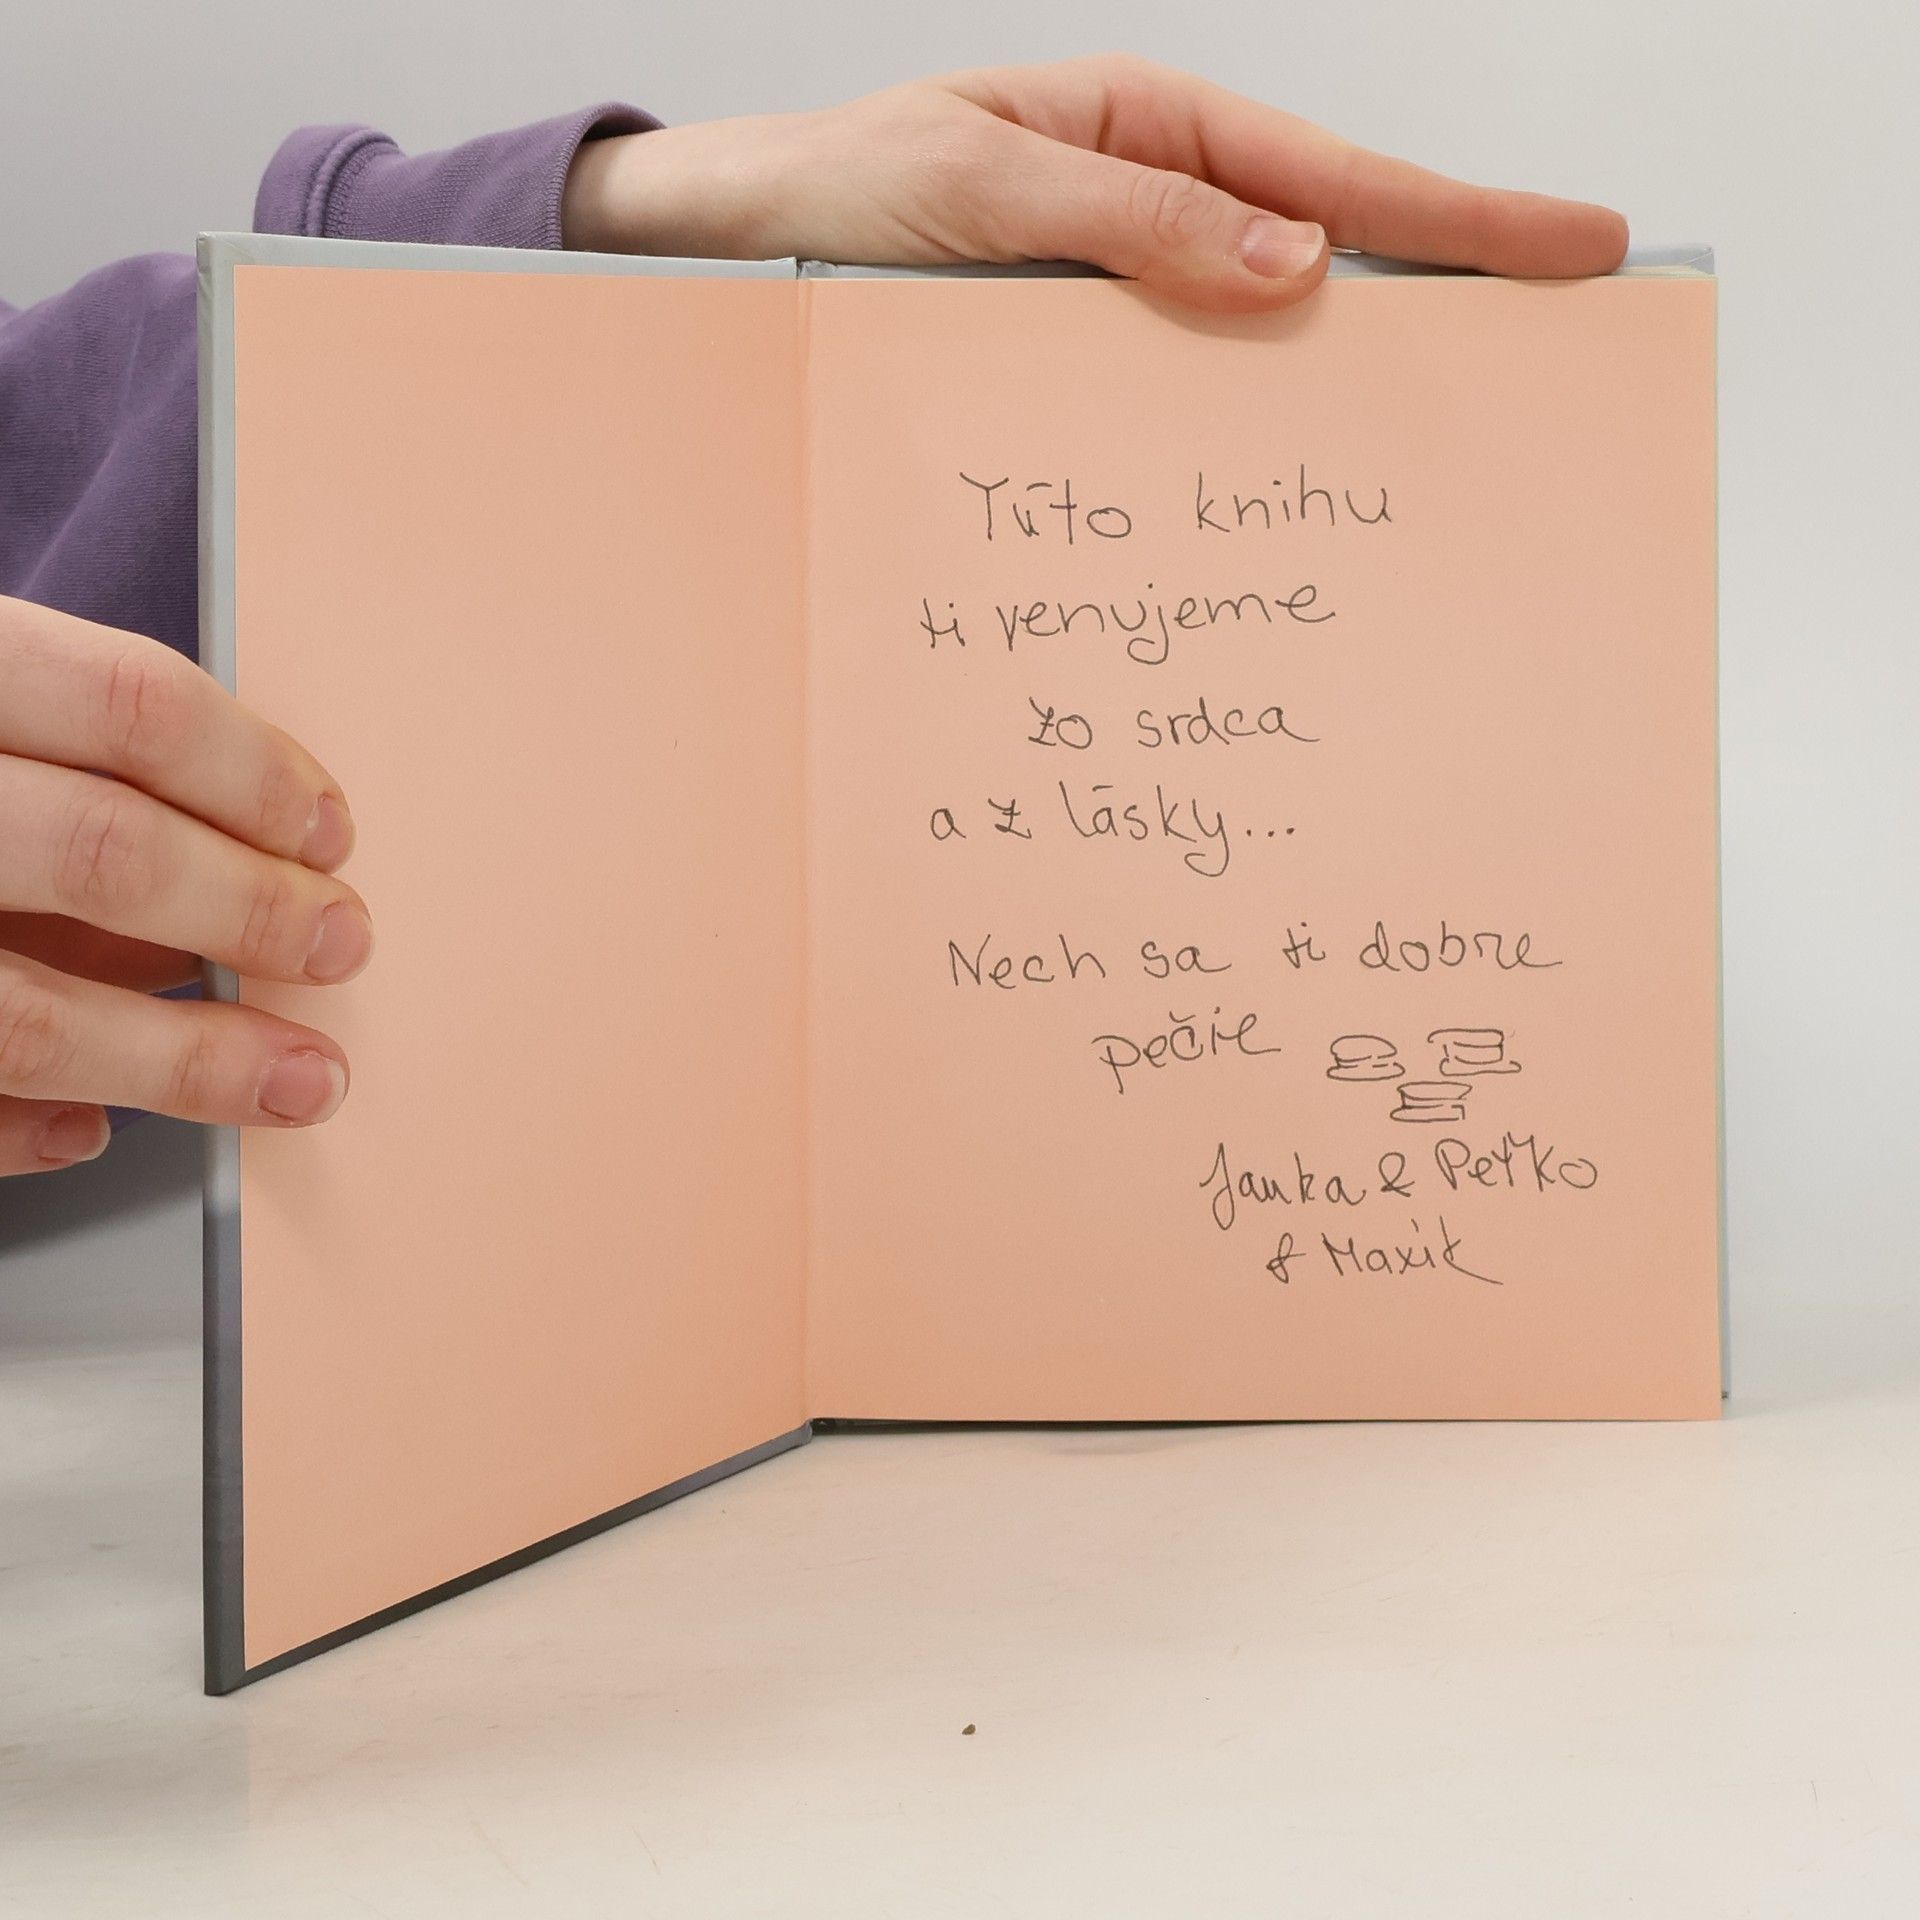 Túto knihu
ti venujeme
zo srdca
a z lásky...
Nech sa ti dobre
pečie
Janka & Peťko
& Maxík